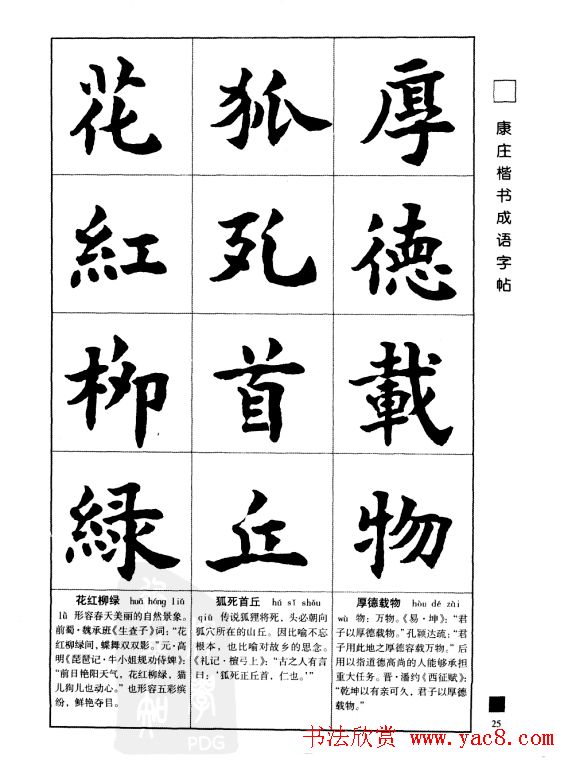 厚德載物
狐死首丘
花紅柳綠
康庄楷书成语字帖
厚德载物 hòu dé zài
wù 物：万物。《易·坤》：“君
子以厚德载物。”孔颖达疏：“君
子用此地之厚德容载万物。”后
用以指道德高尚的人能够承担
重大任务。晋·潘约《西征赋》：
“乾坤以有亲可久，君子以厚德
载物。”
狐死首丘 hú sǐ shǒu
qiū 传说狐狸将死，头必朝向
狐穴所在的山丘。因比喻不忘
根本，也比喻对故乡的思念。
《礼记·檀弓上》：“古之人有言
曰：‘狐死正丘首，仁也。’”
花红柳绿 huā hóng liǔ
lǜ 形容春天美丽的自然景象。
前蜀·魏承班《生查子》词：“花
红柳绿间，蝶舞双双影。”元·高
明《琵琶记·牛小姐规劝侍婢》：
“前日艳阳天气，花红柳绿，猫
儿狗儿也动心。”也形容五彩缤
纷，鲜艳夺目。
25
PDG
书法欣赏 www.yac8.com